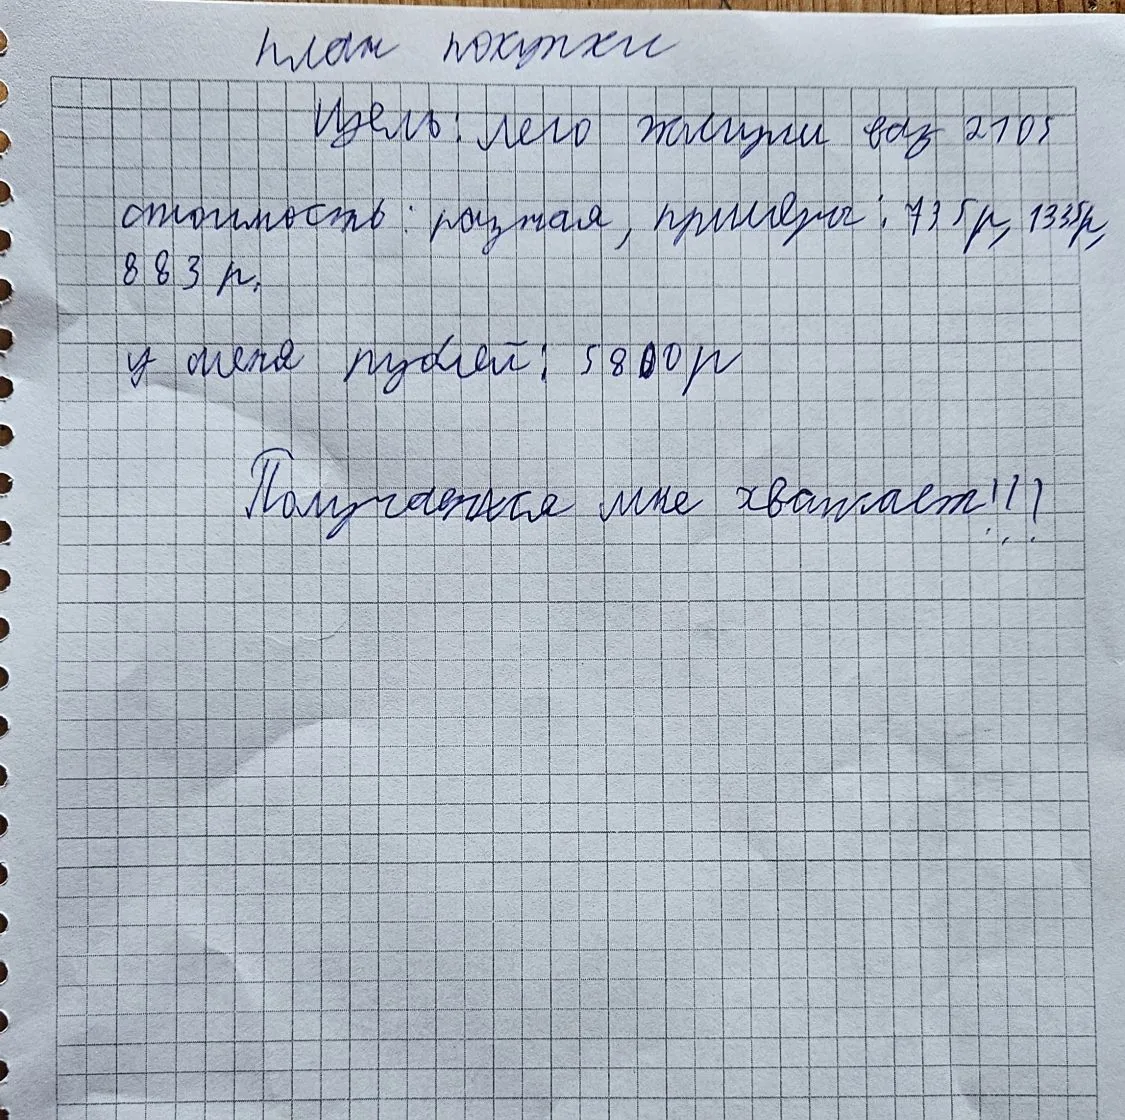 план покупки
Цель: лего жигули ваз 2105
стоимость: разная, примеры: 735р, 1335р,
883 р.
у меня рублей: 5800р
Получается мне хватает!!!